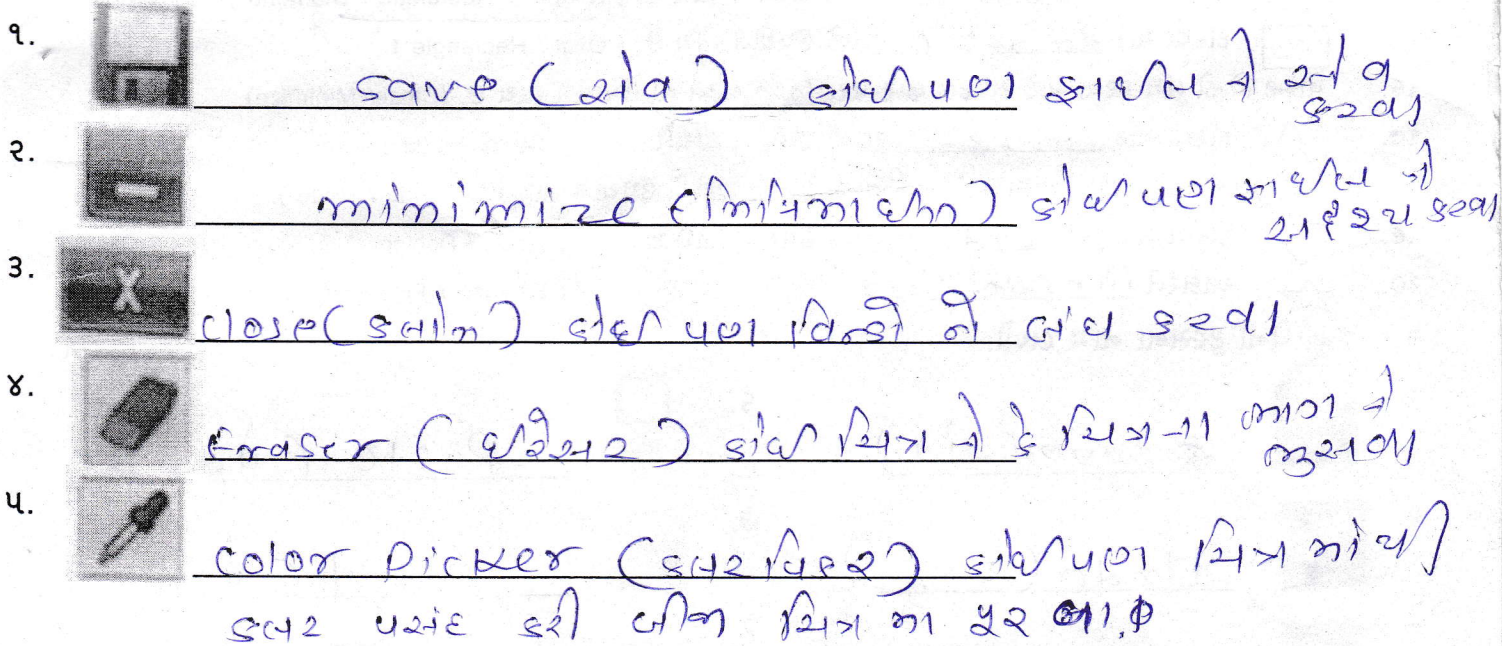 ૧. save (સેવ) કોઈ પણ ફાઈલ ને સેવ
કરવા
૨. minimize (મિનિમાઈઝ) કોઈ પણ ફાઈલ ને
અદૃશ્ય કરવા
૩. close (કલોઝ) કોઈ પણ વિન્ડો ને બંધ કરવા
૪. Eraser (ઈરેસર) કોઈ ચિત્ર ને કે ચિત્રના ભાગ ને
ભુસવા
૫. color Picker (કલર પિકર) કોઈ પણ ચિત્ર માંથી
કલર પસંદ કરી બીજા ચિત્ર મા પૂરવા.